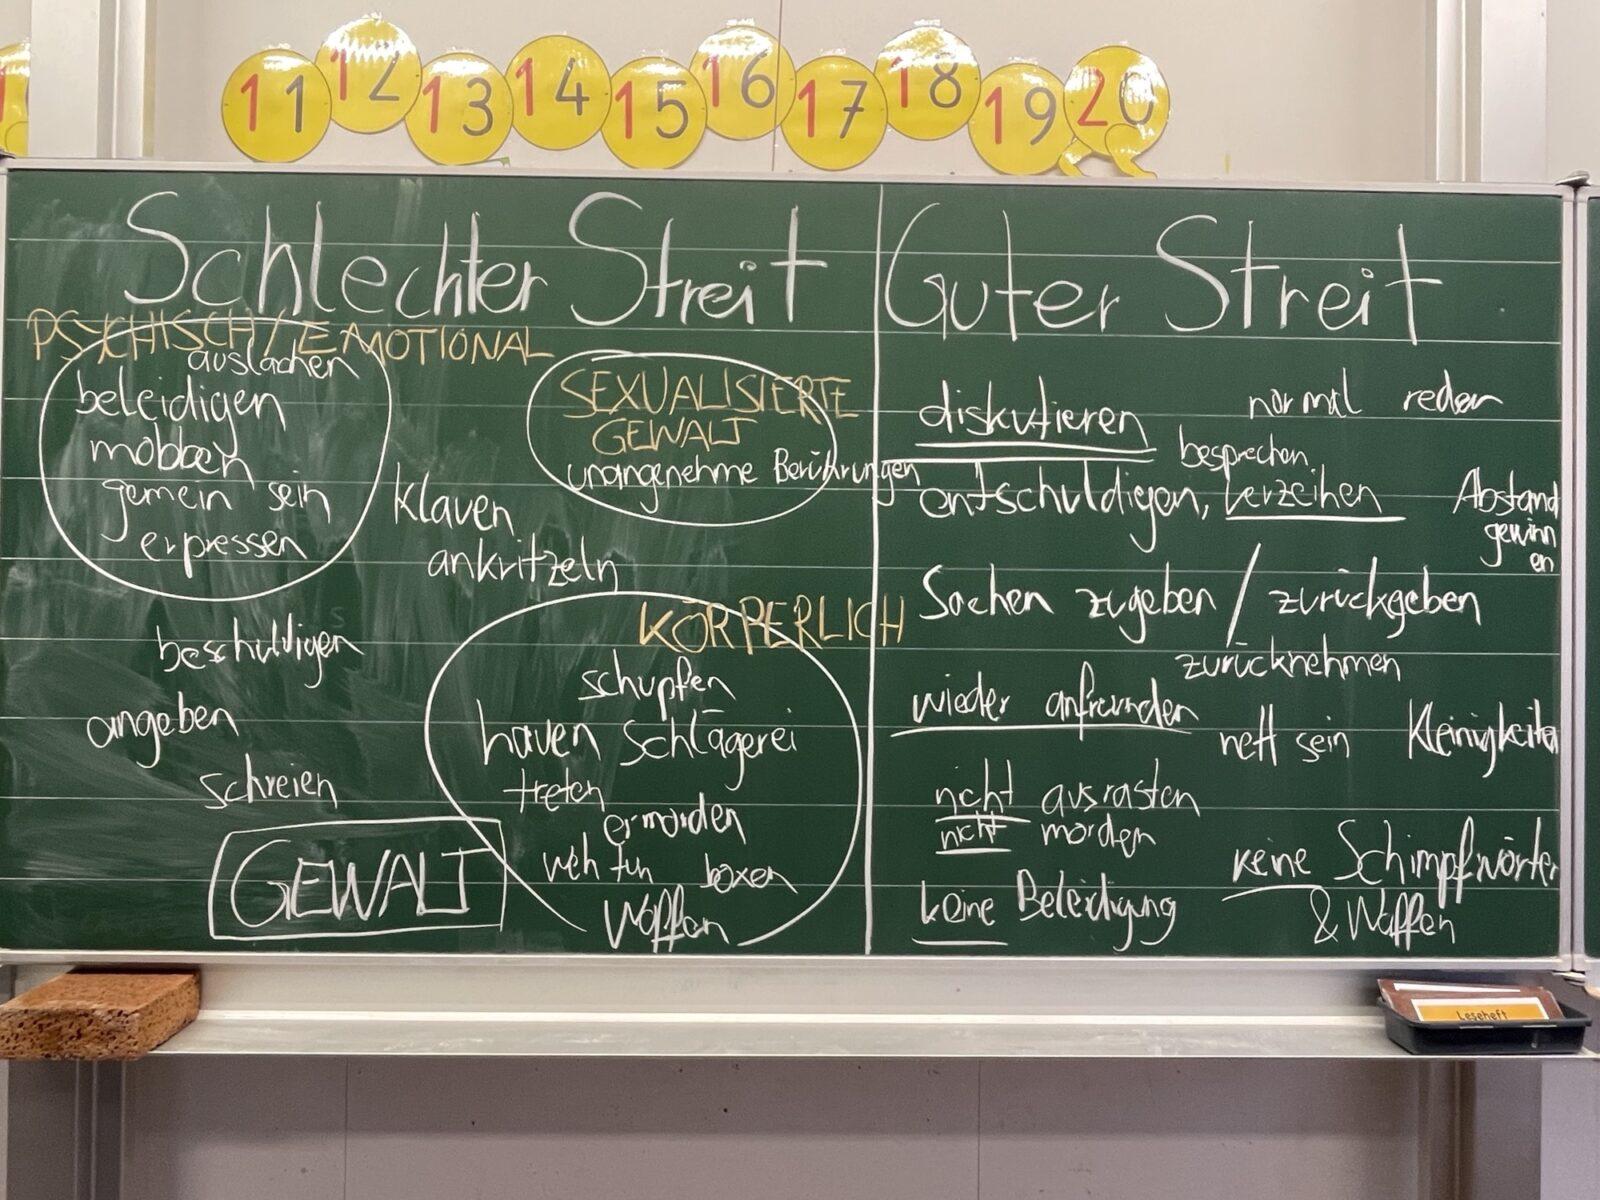 11 12 13 14 15 16 17 18 19 20
Schlechter Streit
PSYCHISCH / EMOTIONAL
auslachen
beleidigen
mobben
gemein sein
erpressen
SEXUALISIERTE
GEWALT
unangenehme Berührungen
klauen
ankritzeln
beschuldigen
angeben
schreien
GEWALT
KÖRPERLICH
schupfen
hauen Schlägerei
treten
ermorden
weh tun boxen
Waffen
Guter Streit
diskutieren
normal reden
besprechen
entschuldigen, verzeihen
Abstand
gewinn
en
Sachen zugeben / zurückgeben
zurücknehmen
wieder anfreunden
nett sein
Kleinigkeiten
nicht ausrasten
nicht morden
keine Beleidigung
keine Schimpfwörter
& Waffen
Leseheft